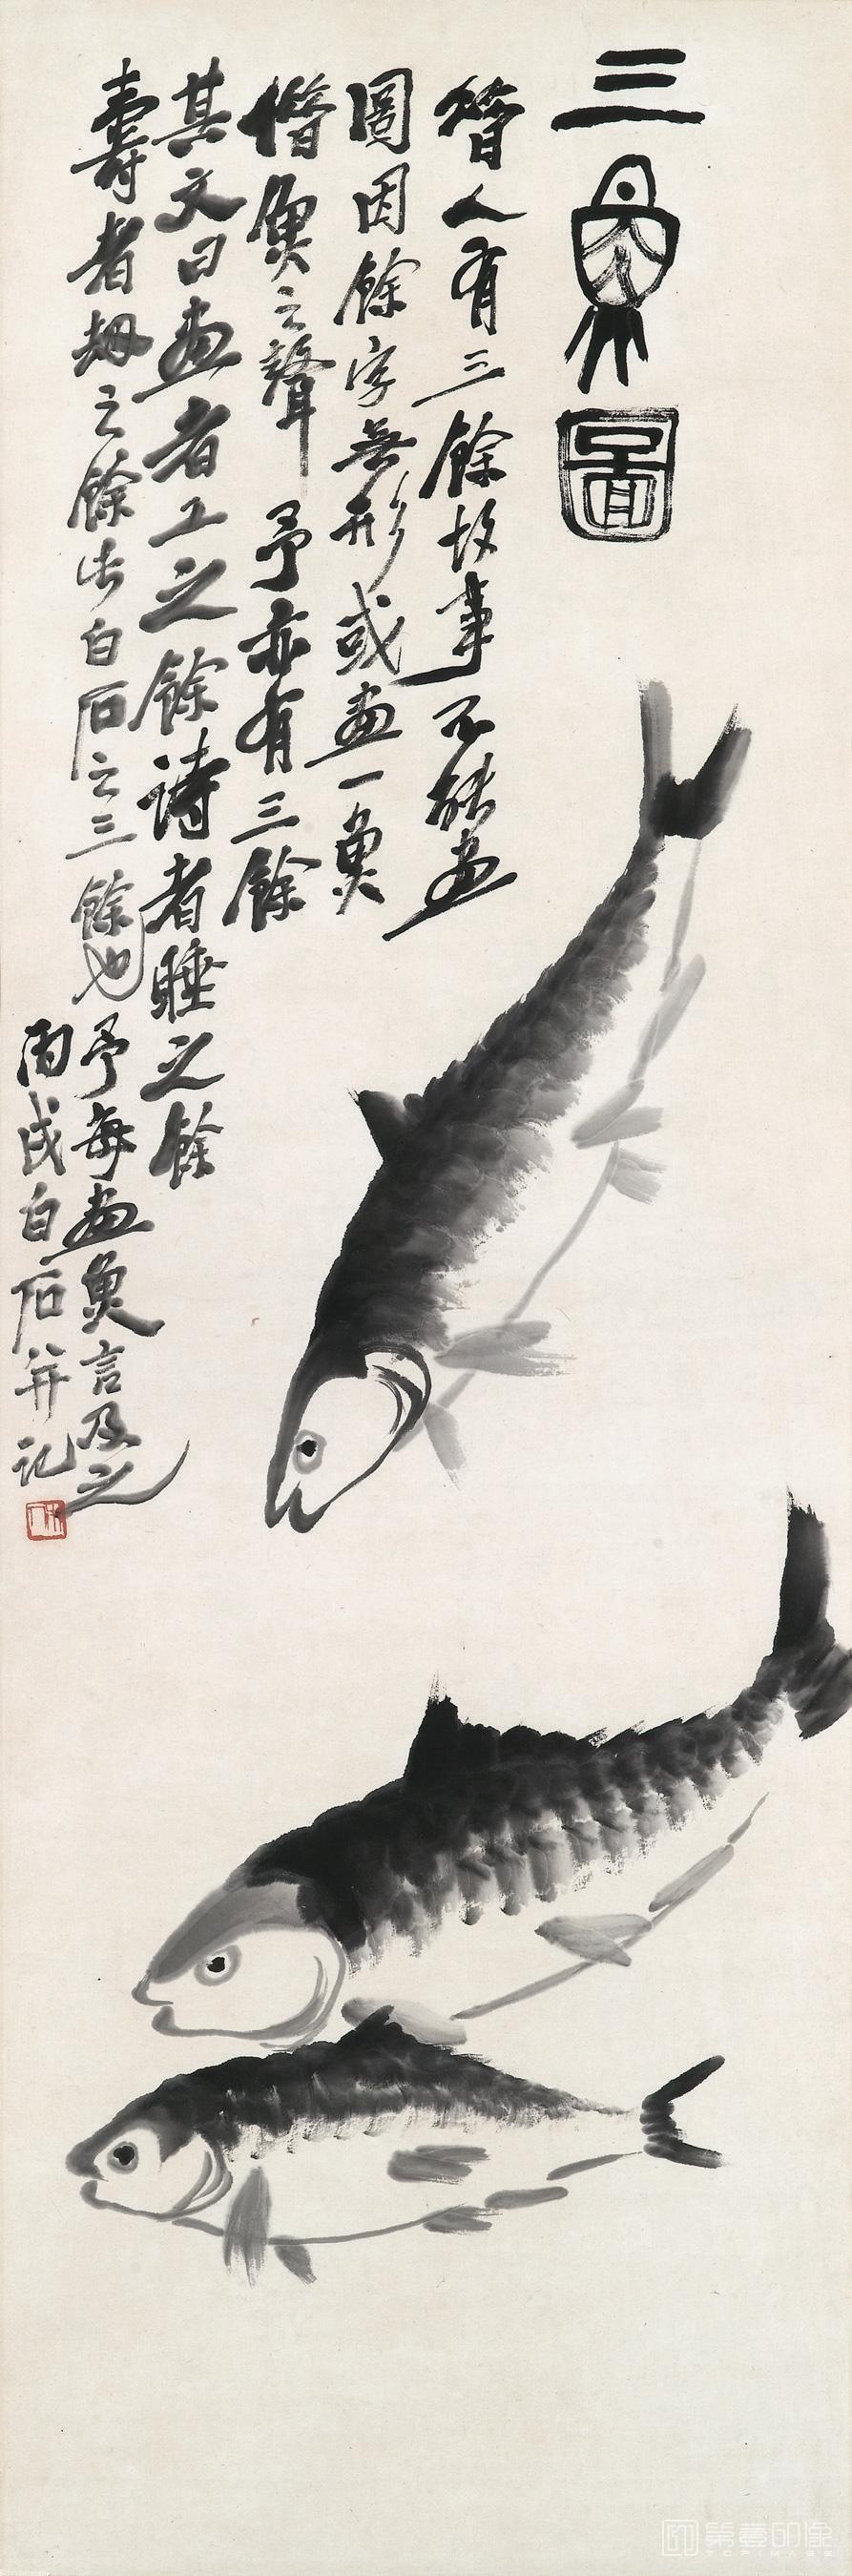 三魚圖
昔人有三餘故事不能畫
圖因餘字無形或畫一魚
借魚之聲 予亦有三餘
其文曰畫者工之餘詩者睡之餘
壽者劫之餘此白石之三餘也予每畫魚言及之
丙戌白石并記
木人
第壹印像
TOPIMAGE